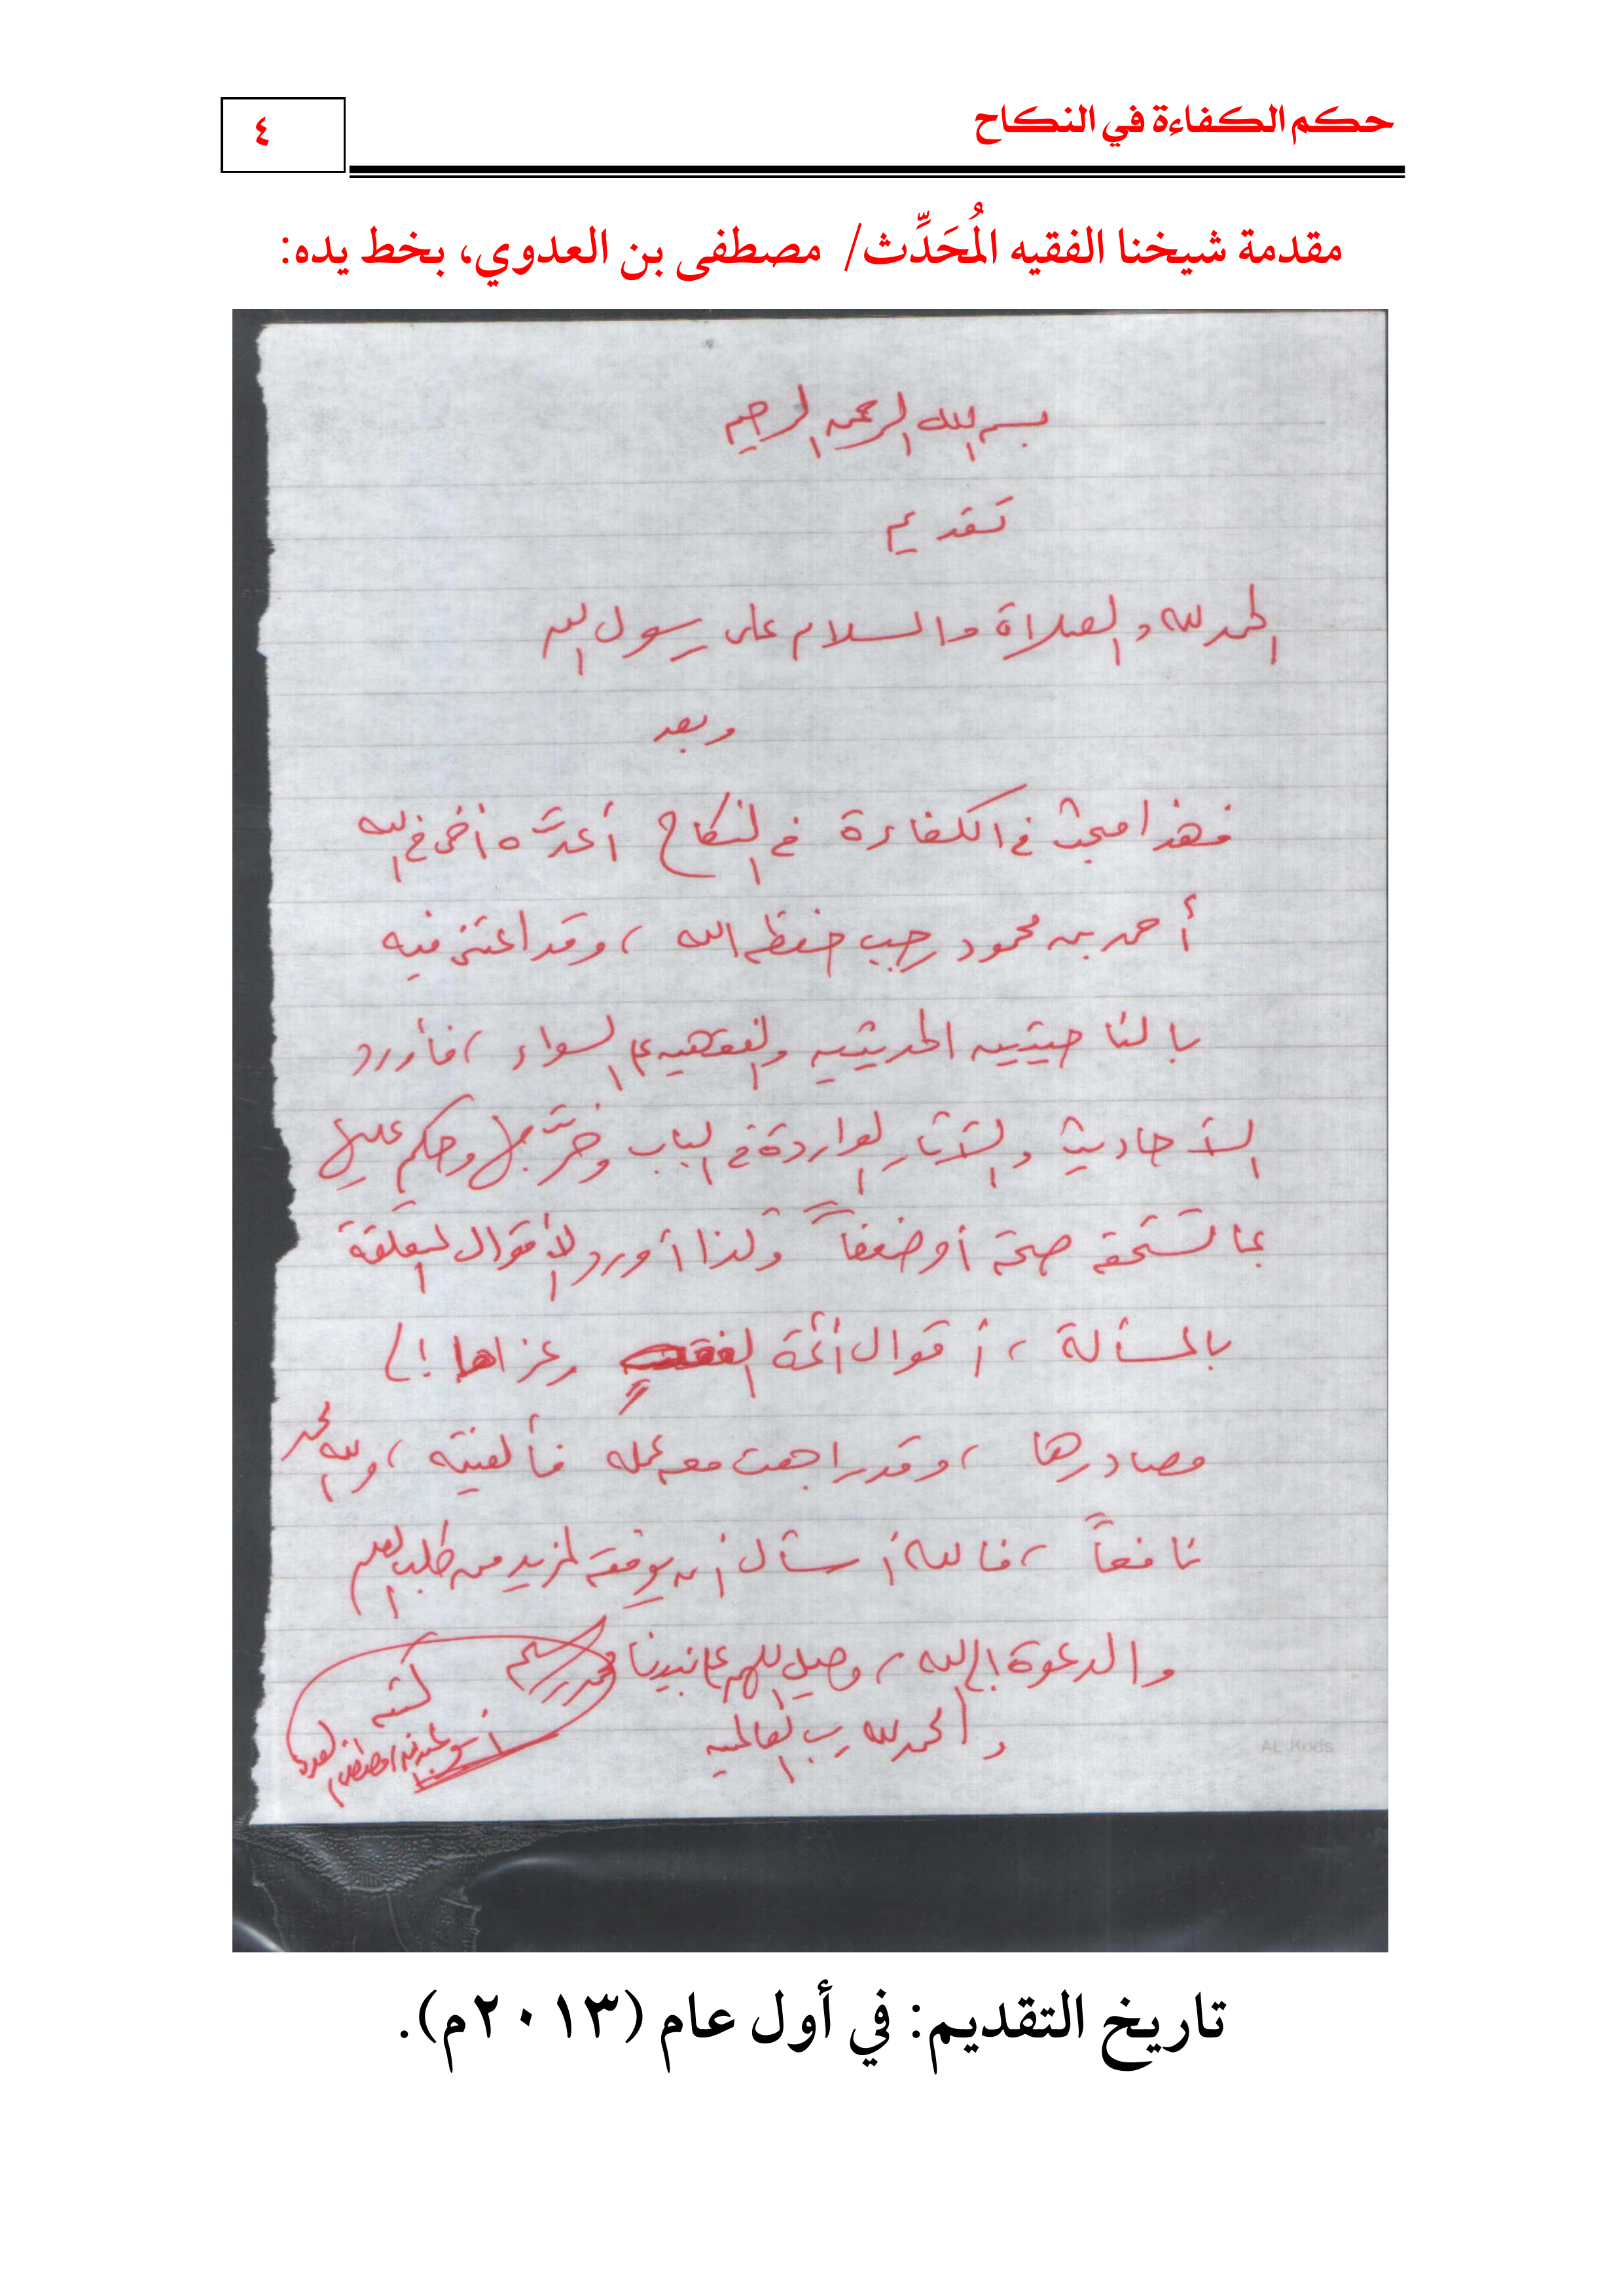 حكم الكفاءة في النكاح
٤
مقدمة شيخنا الفقيه المُحَدِّث/ مصطفى بن العدوي، بخط يده:
بسم الله الرحمن الرحيم
تقديم
الحمد لله والصلاة والسلام على رسول الله
وبعد
فهذا مبحث في الكفاءة في النكاح أعدَّه أخي في الله
أحمد بن محمود رجب حفظه الله، وقد اعتنى فيه
بالناحيتين الحديثية والفقهية على السواء، فأورد
الأحاديث والآثار الواردة في الباب وخرَّجها وحكم عليها
بما تستحقه صحة أو ضعفاً وكذا أورد الأقوال المتعلقة
بالمسألة، أقوال أئمة الفقه وعزاها إلى
مصادرها، وقد راجعت معه عمله فألفيته، ولله الحمد
نافعاً، فالله أسأل أن يوفقه لمزيد من طلب العلم
والدعوة إلى الله، وصل اللهم على نبينا محمد وسلم
والحمد لله رب العالمين
كتبه
أبو عبد الله مصطفى بن العدوي
AL Kods
تاريخ التقديم: في أول عام (٢٠١٣م).